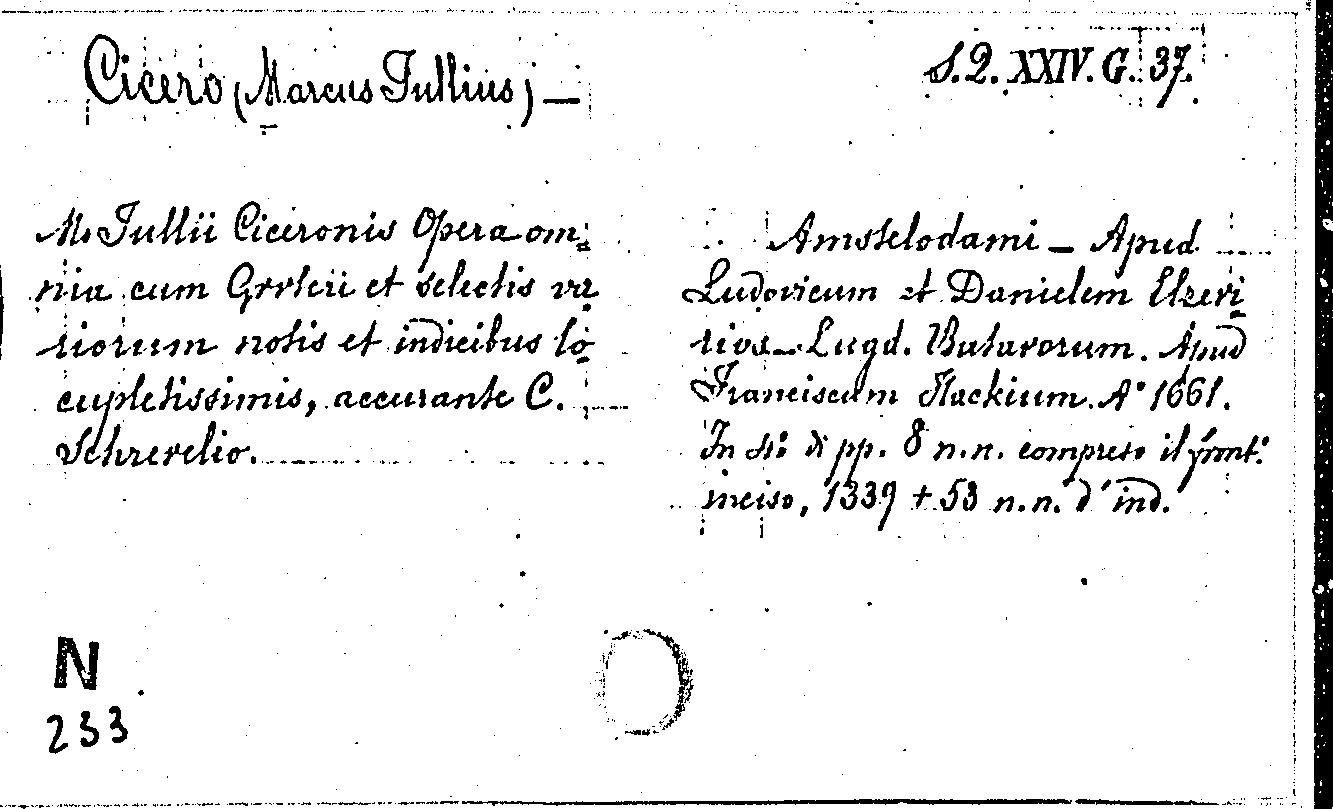 Cicero (Marcus Tullius) —
S.Q. XXIV. G. 37.
M. Tullii Ciceronis Opera om=
nia cum Gruterii et selectis va
riorum notis et indicibus lo
cupletissimis, accurante C.
Schrevelio.
Amstelodami — Apud
Ludovicum et Danielem Elzevi
rios — Lugd. Batavorum. Apud
Franciscum Hackium. A° 1661.
In 4.° di pp. 8 n.n. compreso il front.°
inciso, 1339 + 53 n.n. d'ind.
N
233